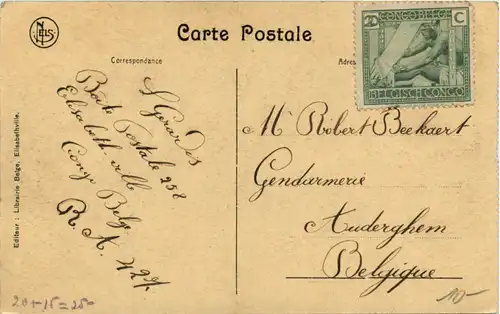 NELS
Carte Postale
Correspondance
Adres
20 CONGO BELGE C
BELGISCH CONGO
L Gerardis
Boite Postale 258
Elisabeth-ville
Congo Belge
R. A. 427.
Mr Robert Beekaert
Gendarmerie
Auderghem
Belgique
Editeur : Librairie Belge, Elisabethville.
20+15=25-
10-